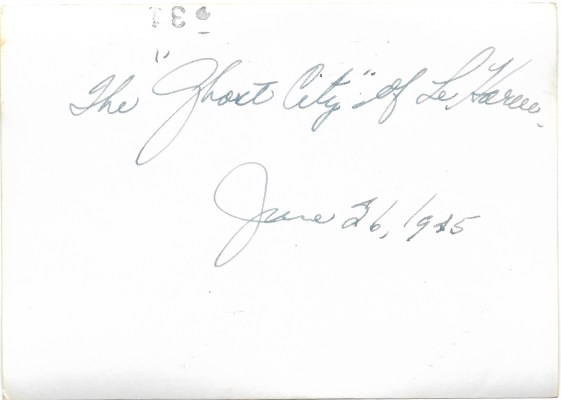 The "Ghost City" of Le Harve.
June 26, 1945